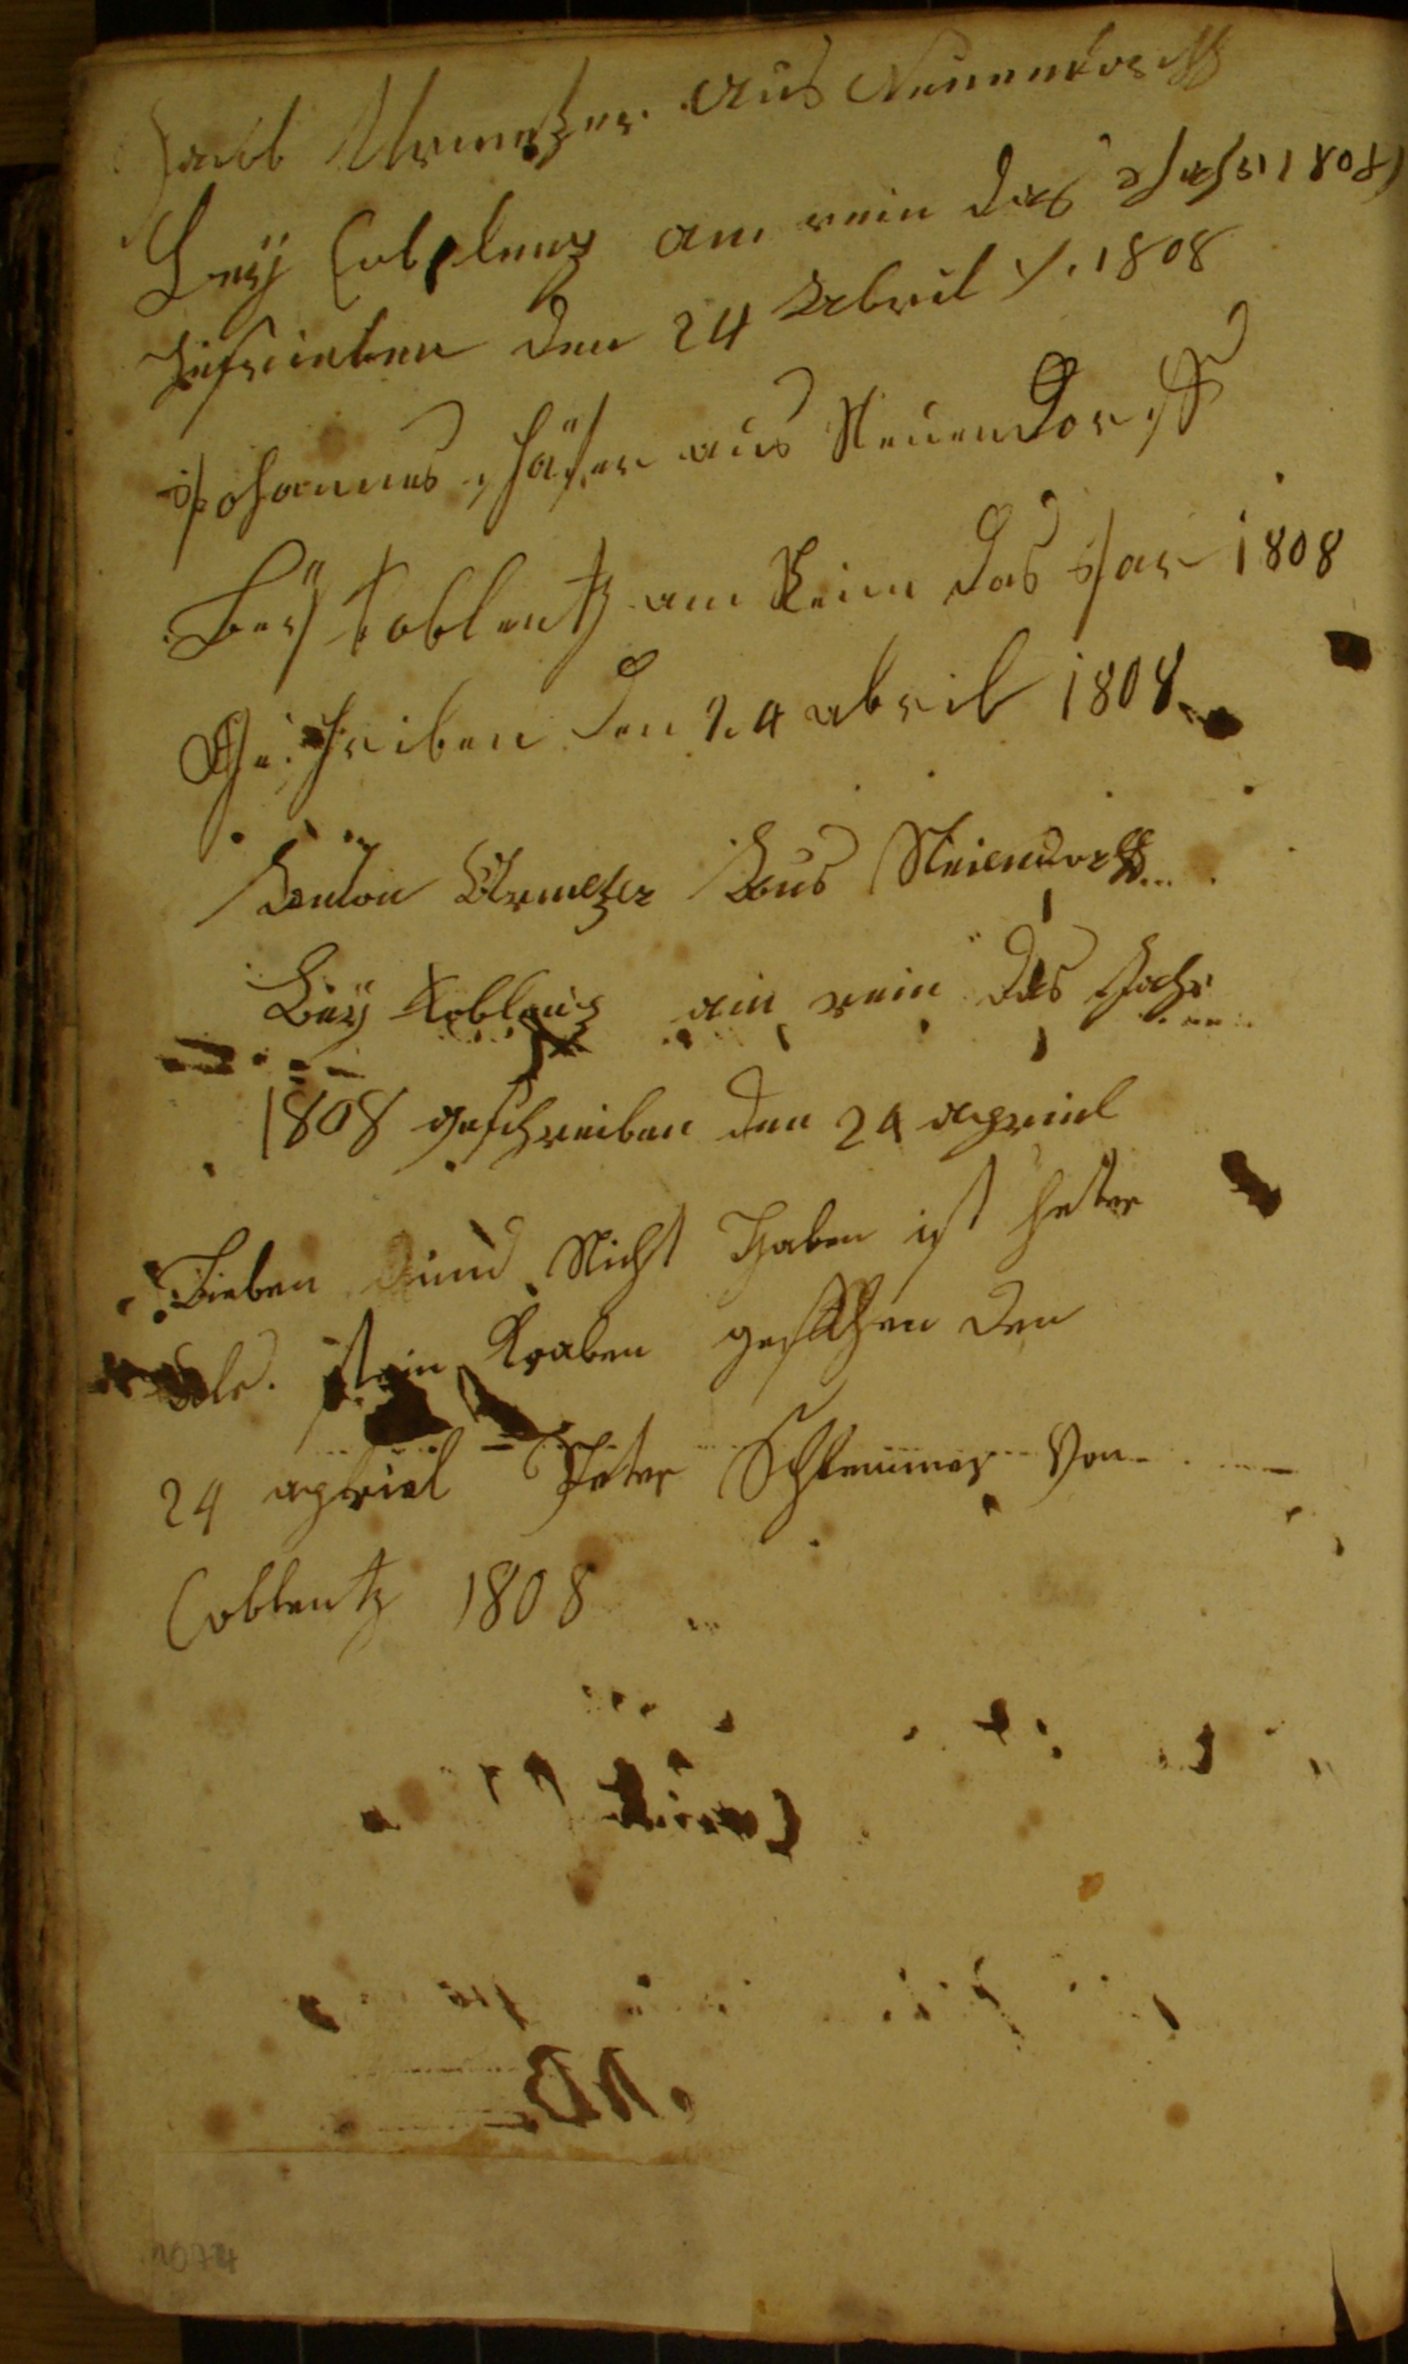 Jacob Urmetzer aus Neuendorff
Bey Coblenz am rein das 1808
den 24 Abril 1808
Johannes schäfer aus Neuendorff
Bey Coblentz am Rein das Jar 1808
Geschriben den 24 abril 1808
Anton Urmetzer Aus Neiendorff
Bey Koblenz am rein das Jahr
1808 geschreiben den 24 apriel
Lieben und Nicht Haben ist
stein Graben geschehen den
24 apriel Peter von
Coblentz 1808